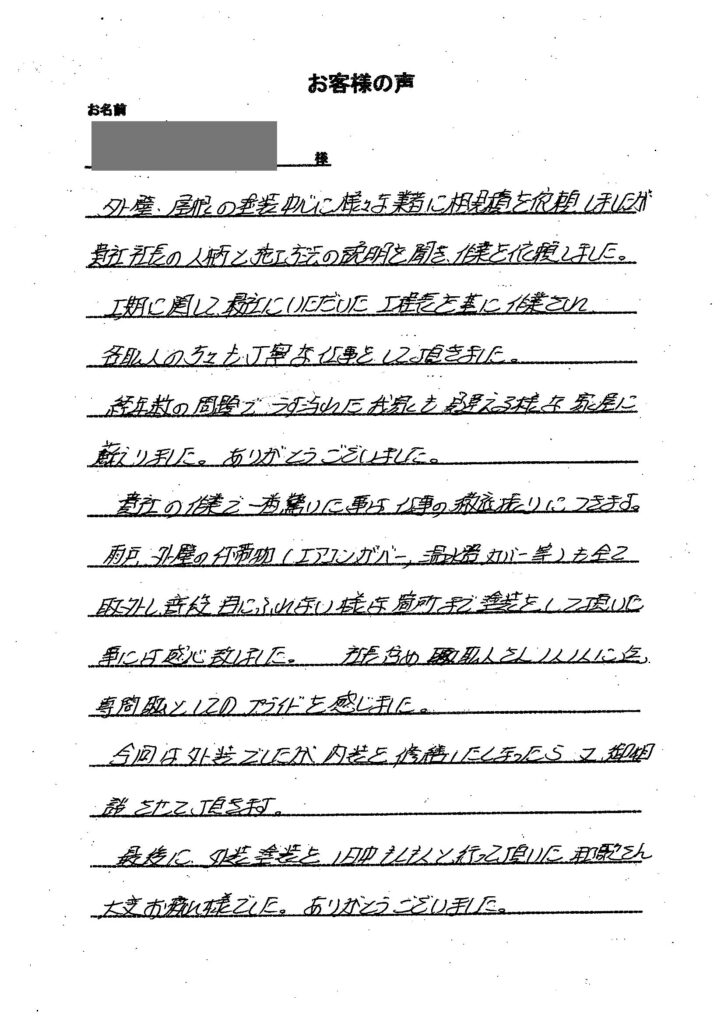 お客様の声
お名前
様
外壁、屋根の塗装中心に様々な業者に相見積を依頼しましたが
貴社社長の人柄と施工方法の説明を聞き、作業を依頼しました。
工期に関して、貴社にいただいた工程表を基に作業され
各職人の方々も丁寧な仕事をして頂きました。
経年数の問題で、うす汚れた我家も見違える様な家屋に
蘇えりました。ありがとうございました。
貴社の作業で一番驚いた事は仕事の徹底振りにつきます。
雨戸、外壁の付帯物(エアコンカバー、湯水器カバー等)も全て
取外し、普段目にふれない様な箇所まで塗装をして頂いた
事には感心致しました。 社長含め 職人さん一人一人に
専門職としてのプライドを感じました。
今回は外装でしたが、内装を修繕したしまったら又、御相
談させて頂きます。
最後に、外装塗装を1日中もくもくと行って頂いた さん
大変お疲れ様でした。ありがとうございました。